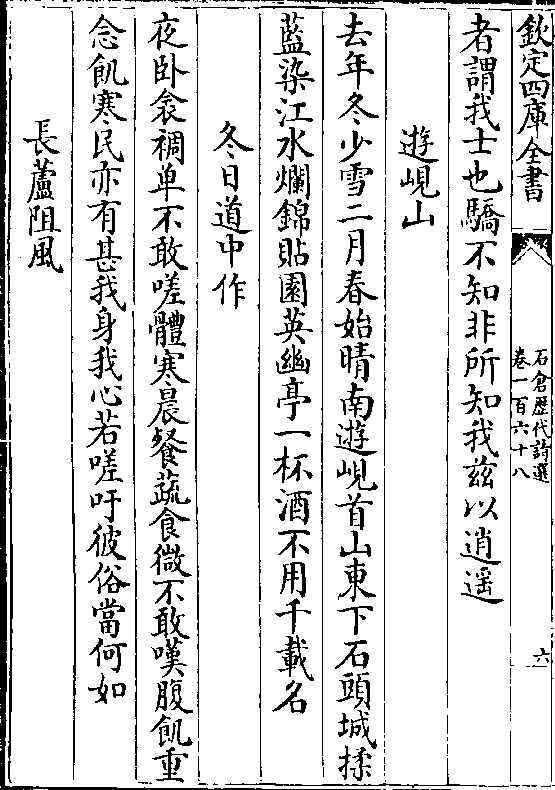 欽定四庫全書
石倉歴代詩選
卷一百六十八
六
者謂我士也驕不知非所知我兹以逍遥
遊峴山
去年冬少雪二月春始晴南遊峴首山東下石頭城揉
藍染江水爛錦貼園英幽亭一杯酒不用千載名
冬日道中作
夜卧衾裯单不敢嗟體寒晨餐蔬食微不敢嘆腹飢重
念飢寒民亦有甚我身我心若嗟吁彼俗當何如
長蘆阻風